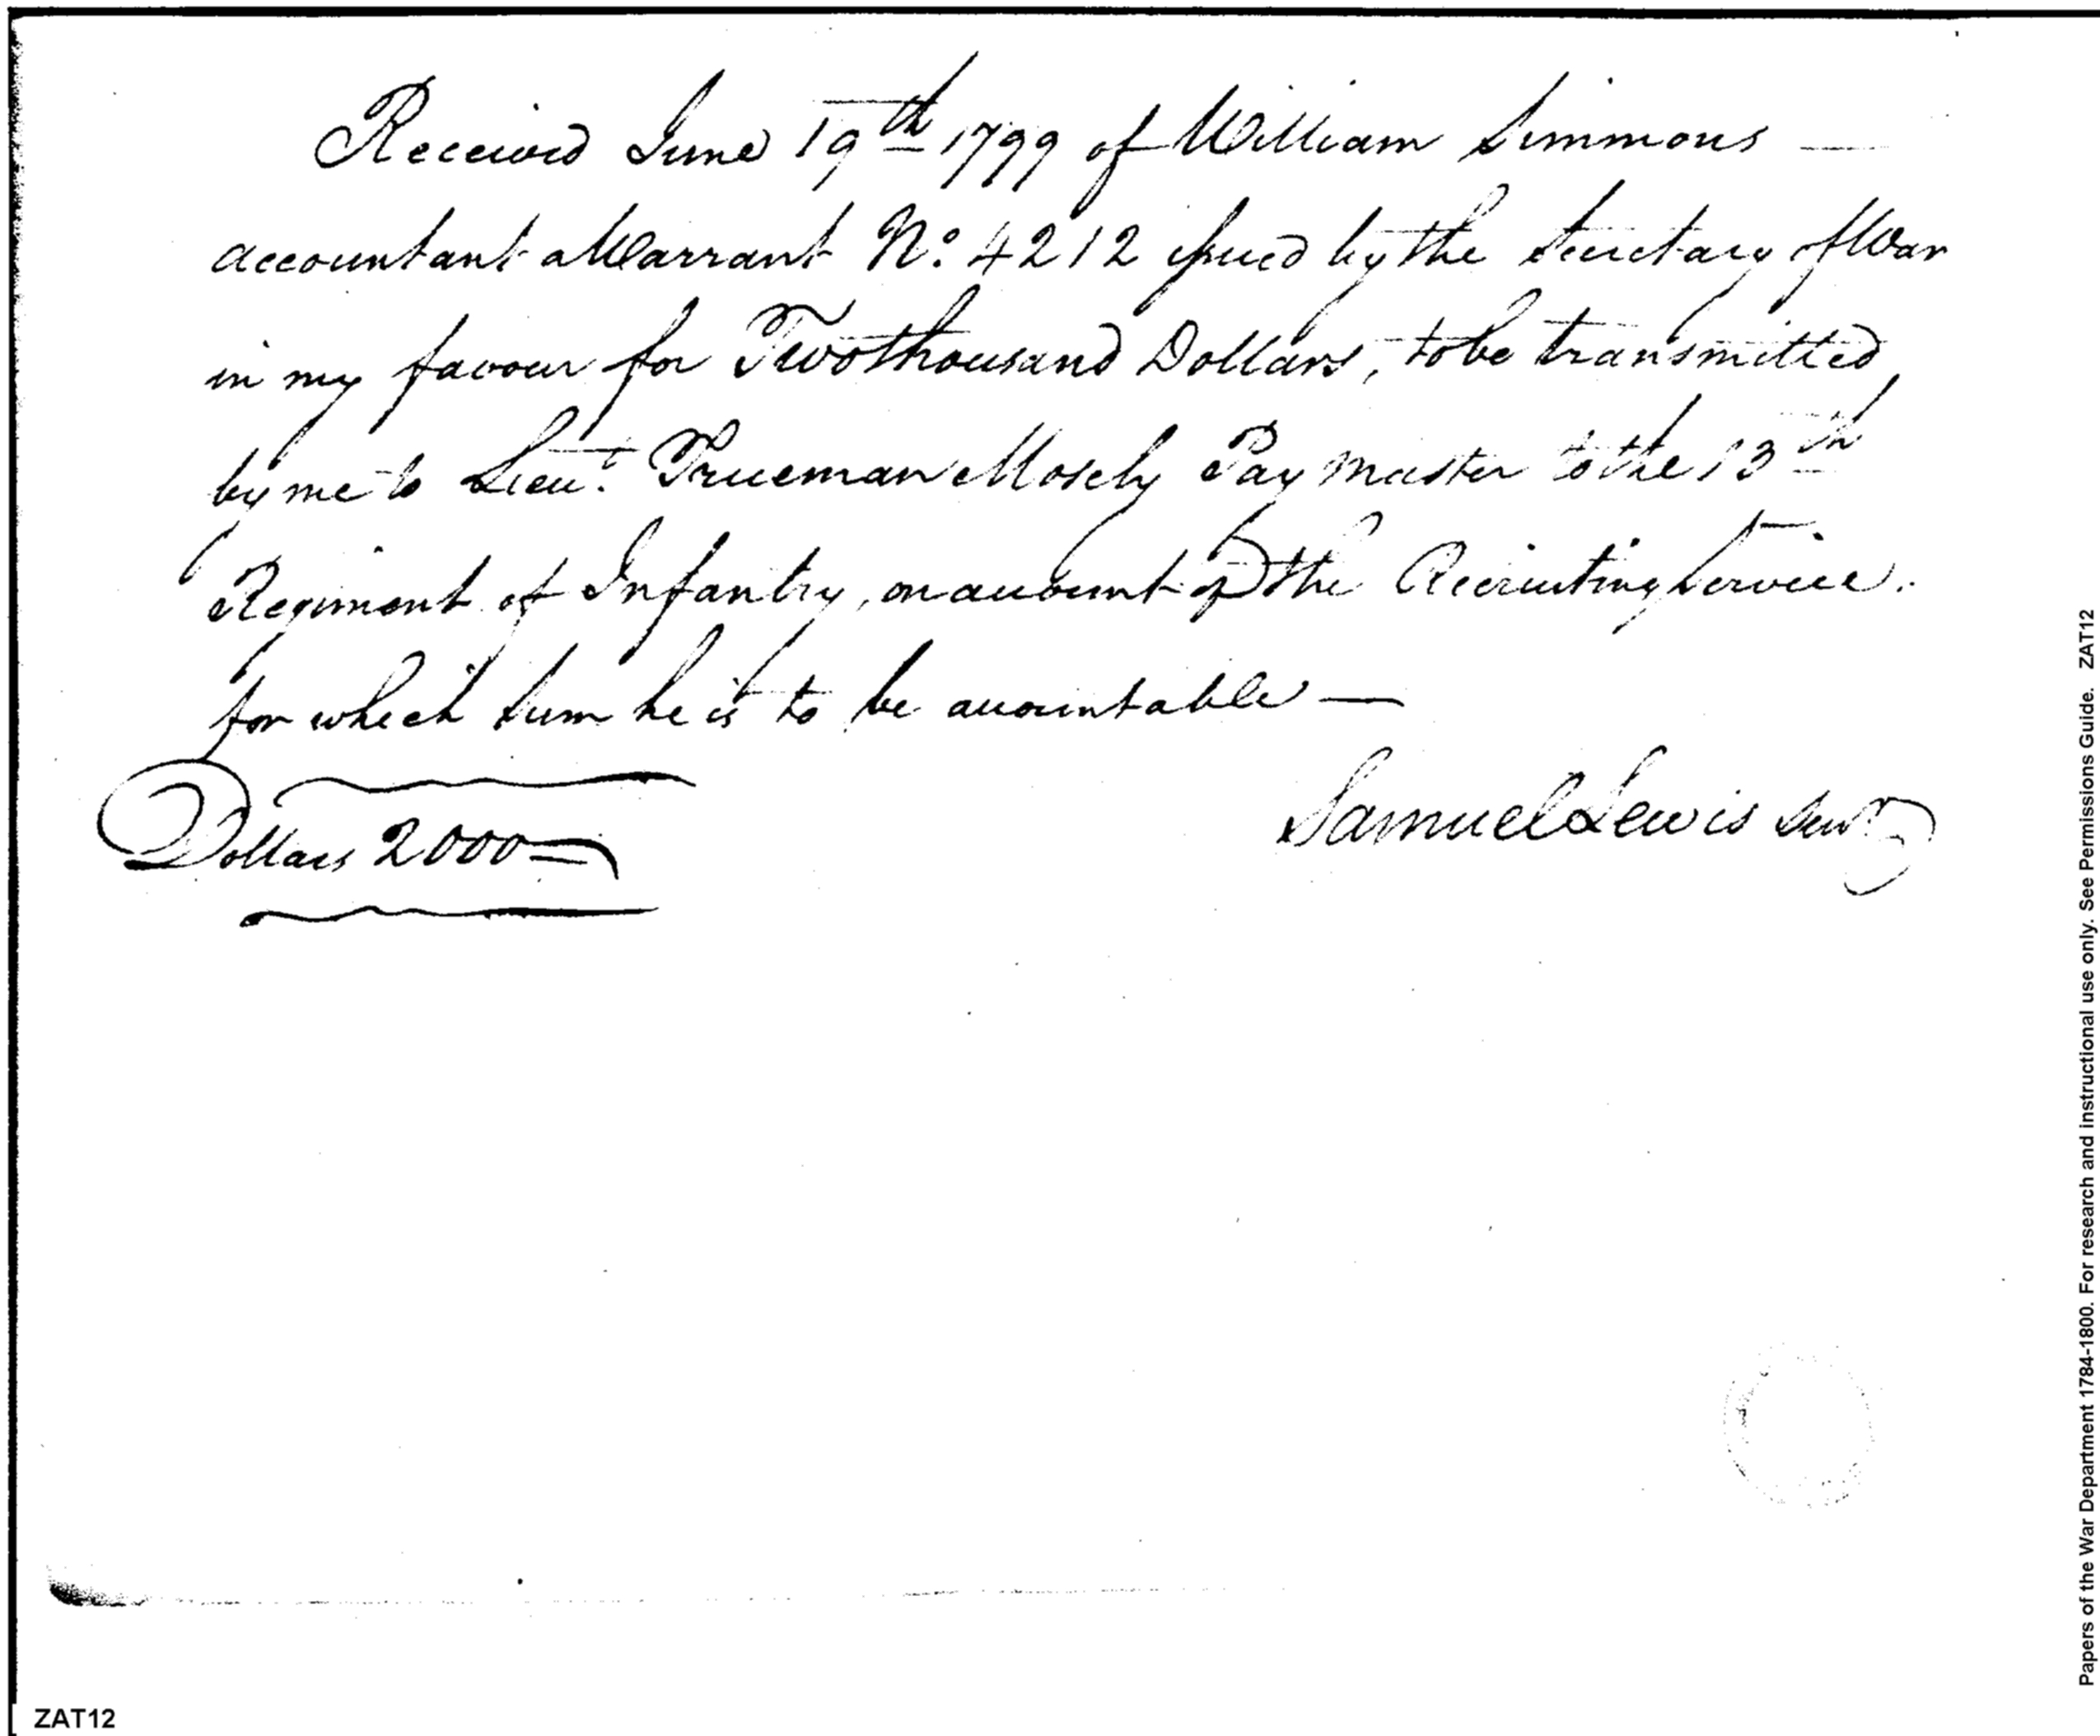 Received June 19th 1799 of William Simmons —
accountant a Warrant No. 4212 issued by the Secretary of War
in my favour for Two thousand Dollars, to be transmitted
by me to Lieut. Trueman Mosely Pay Master to the 13th
Regiment of Infantry, on account of the Recruiting Service.
for which sum he is to be accountable —
Dollars 2000
Samuel Lewis Senr
Papers of the War Department 1784-1800. For research and instructional use only. See Permissions Guide. ZAT12
ZAT12